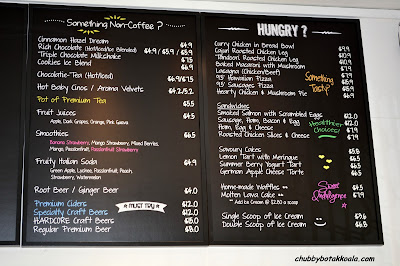 Something Non-Coffee ?
Cinnamon Hazel Dream $4.9
Rich Chocolate (Hot/Iced/Ice Blended) $4.9 / $5.9 / $5.9
Triple Chocolate Milkshake $7.5
Cookies Ice Blend $6.9
Chocolatte-Tea (Hot/Iced) $6.9/$7.5
Hot Baby Cinos / Aroma Velvets $4.2/5.2
Pot of Premium Tea $5.5
Fruit Juices $4.5
Apple, Dark Grapes, Orange, Pink Guava
Smoothies $6.5
Banana Strawberry, Mango Strawberry, Mixed Berries,
Mango, Passionfruit, Passionfruit Strawberry
Fruity Italian Soda $4.9
Green Apple, Lychee, Passionfruit, Peach,
Strawberry, Watermelon
Root Beer / Ginger Beer $4.0
Premium Ciders $12.0
Speciality Craft Beers $12.0
HARDCORE Craft Beers $15.0
Regular Premium Beer $8.0
MUST TRY
HUNGRY ?
Curry Chicken in Bread Bowl $9.9
Cajun Roasted Chicken Leg
Tandoori Roasted Chicken Leg
Baked Macaroni with Mushroom
Lasagna (Chicken/Beef)
9.5' Hawaiian Pizza
9.5' Sausages Pizza
Hearty Chicken & Mushroom Pie
Something Tasty?
Sandwiches
Smoked Salmon with Scrambled Eggs $12.0
Sausage, Ham, Bacon & Egg
Ham, Egg & Cheese $7.9
Roasted Chicken Slices & Cheese $7.9
Healthier Choices!
Savoury Cakes $5.8
Lemon Tart with Meringue $6.5
Summer Berry Yogurt Tarts $6.5
German Apple Cheese Torte $6.5
Home-made Waffles ** $4.5
Molten Lava Cake ** $7.9
** Add Ice Cream @ $2.80 a scoop
Sweet Indulgence
Single Scoop of Ice Cream $3.6
Double Scoop of Ice Cream $6.8
chubbybotakkoala.com